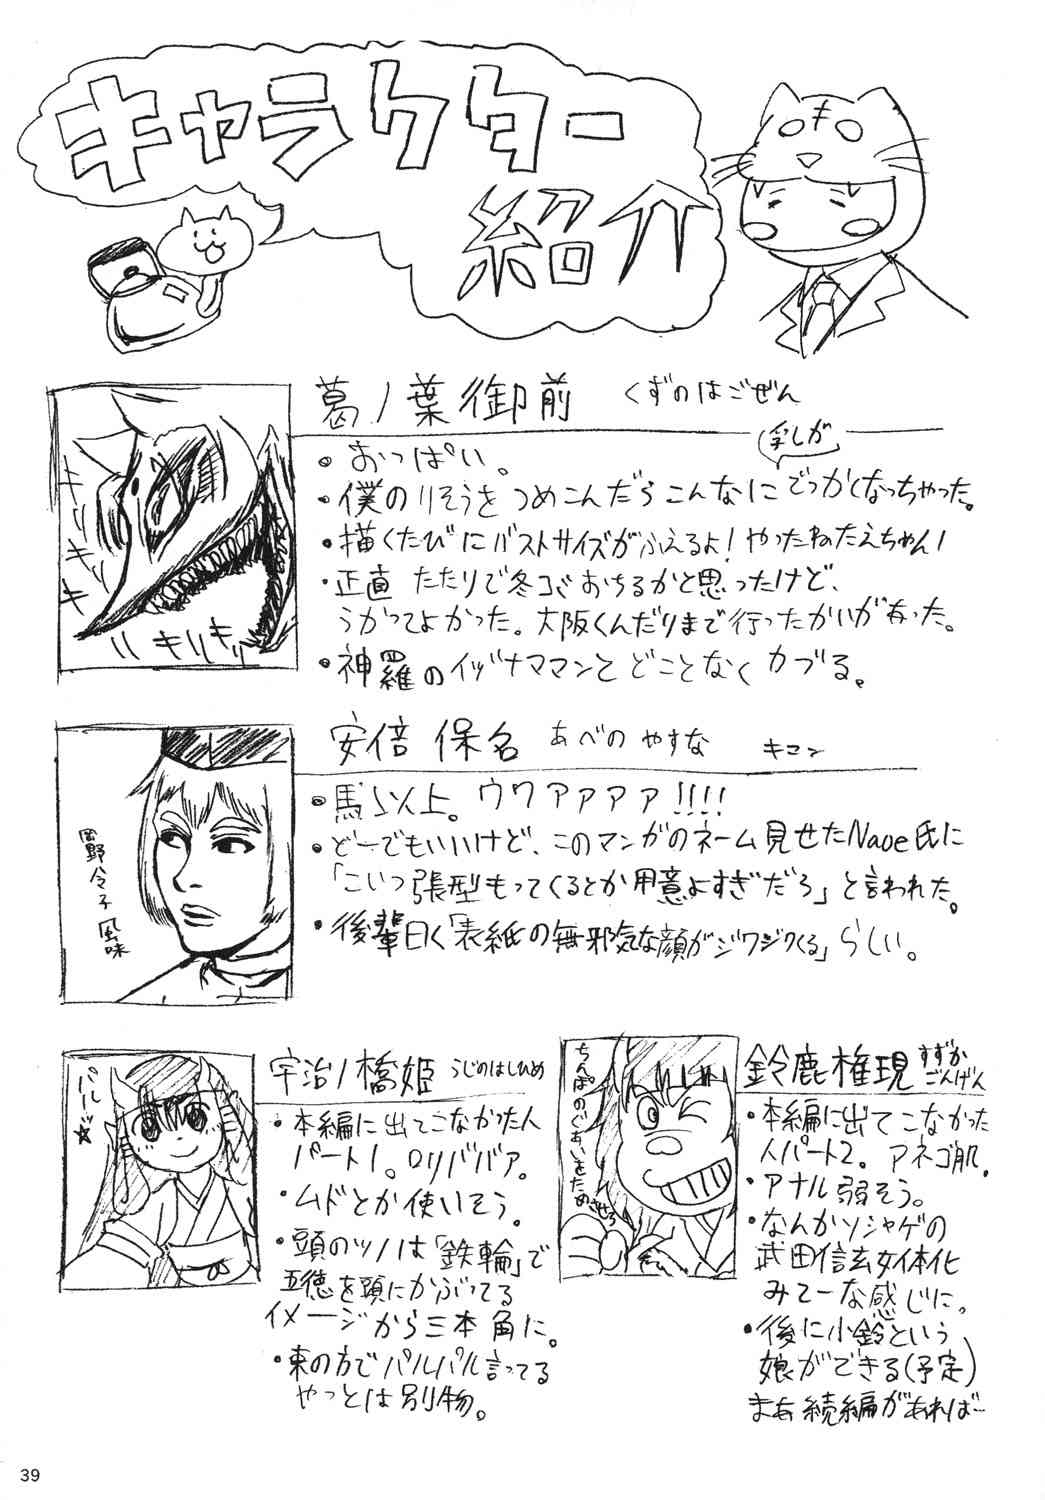 キャラクター
紹介
葛ノ葉御前 くずのはごぜん
・おっぱい。
乳しが
・僕のりそうをつめこんだらこんなにでっかくなっちゃった。
・描くたびにバストサイズがふえるよ!やったねたえちゃん!
・正直 たたりで冬コミおちるかと思ったけど、
うかってよかった。大阪くんだりまで行ったかいが有った。
・神羅のイヅナママンとどことなくカブる。
キリキリキリ
安倍 保名 あべの やすな キコン
・馬以上。ウワァァァァ!!!!
・どーでもいいけど、このマンガのネーム見せたNaoe氏に
「こいつ張型もってくるとか用意よすぎだろ」と言われた。
・後輩曰く「表紙の無邪気な顔がジワジワくる」らしい。
岡野令子風味
宇治ノ橋姫 うじのはしひめ
・本編に出てこなかった人
パート1。ロリババア。
・ムドとか使いそう。
・頭のツノは「鉄輪」で
五徳を頭にかぶってる
イメージから三本角に。
・東の方でパルパル言ってる
やつとは別物。
パルッ☆
鈴鹿権現 すずか
ごんげん
・本編に出てこなかった
人パート2。アネゴ肌。
・アナル弱そう。
・なんかソシャゲの
武田信玄女体化
みてーな感じに。
・後に小鈴という
娘ができる(予定)
まあ続編があれば…
ちんぽのぐあいをためさせろ
39